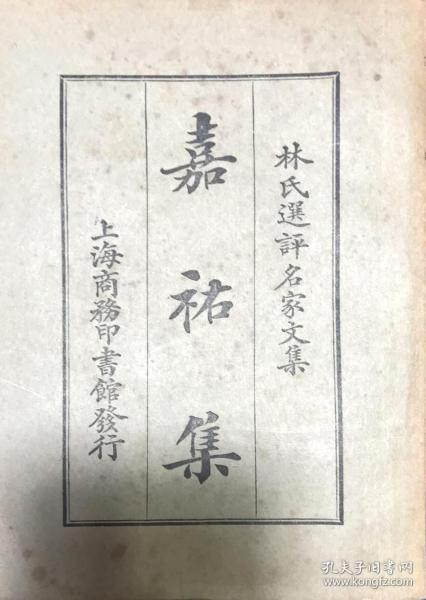 林氏選評名家文集
嘉祐集
上海商務印書館發行
孔夫子旧书网
www.kongfz.com